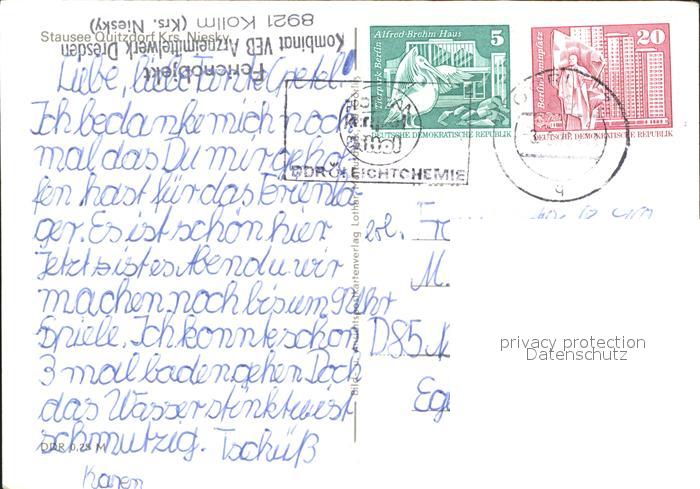 Stausee Quitzdorf Krs. Niesky
Ferienobjekt
Kombinat VEB Arzneimittelwerk Dresden
8921 Kollm (Krs. Niesky)
Liebe, liebe Tante
Ich bedanke mich noch
mal das Du mir gehol
fen hast für das Ferienla-
ger. Es ist schön hier
Jetzt ist es Abend u wir
machen noch bis um 9 Uhr
Spiele. Ich konnte schon
3 mal baden gehen. Doch
das Wasser stinkt u ist
schmutzig. Tschüß
Karen
DDR 0,25 M
Alfred-Brehm Haus
5
Tierpark Berlin
DEUTSCHE DEMOKRATISCHE REPUBLIK
20
Berlin-Leninplatz
DEUTSCHE DEMOKRATISCHE REPUBLIK
DDR LEICHTCHEMIE
9
M.
D85
privacy protection
Datenschutz